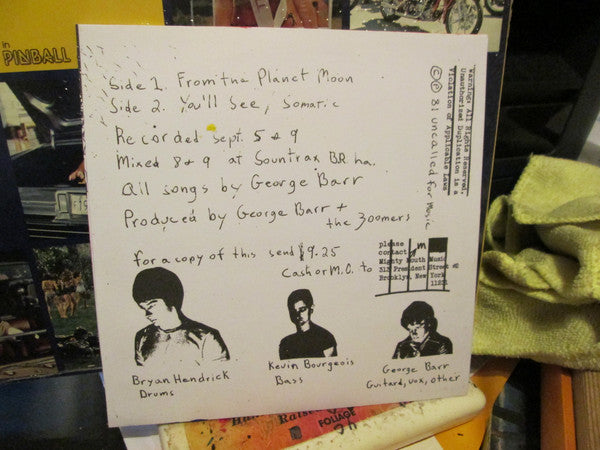 in
PINBALL
Side 1. From the Planet Moon
Side 2. You'll See, Somatic
Recorded Sept. 5 & 9
Mixed 8 & 9 at Sountrax BR. ha.
All songs by George Barr
Produced by George Barr +
the Zoomers
for a copy of this send $9.25
Cash or M.O. to
please
contact m
Mighty Mouth Music
312 President Street
Brooklyn, New York
Warning: All Rights Reserved.
Unauthorized Duplication is a
Violation of Applicable Laws
©℗ 81 uncalled for Music
Bryan Hendrick
Drums
Kevin Bourgeois
Bass
George Barr
Guitard, vox, other
FOLIAGE